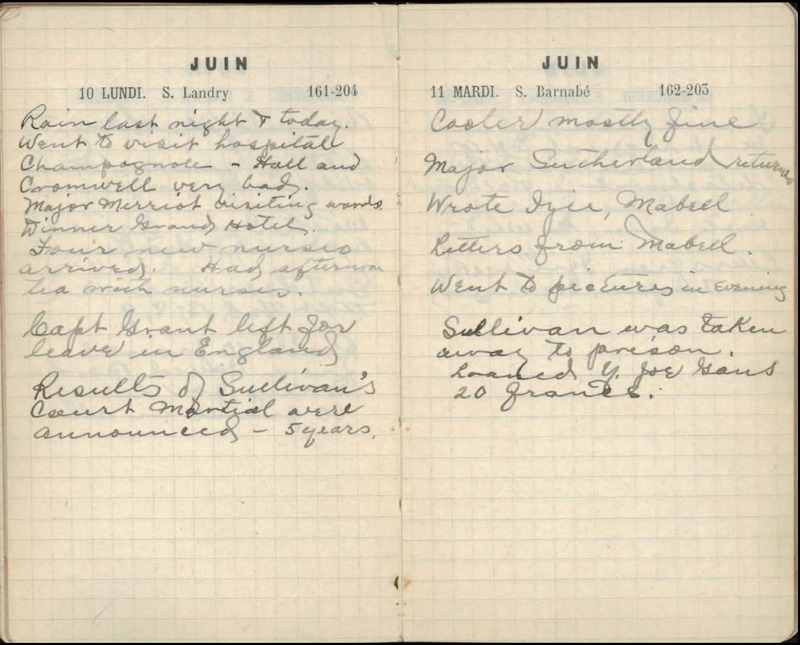 JUIN
10 LUNDI. S. Landry 161-204
Rain last night & today.
Went to visit hospital
Champagnole - Hall and
Cromwell very bad.
Major Merriot visiting wards.
Dinner Grand Hotel.
Four new nurses
arrived. Had afternoon
tea with nurses.
Capt Grant left for
leave in England
Results of Sullivan's
Court Martial were
announced - 5 years.
JUIN
11 MARDI. S. Barnabé 162-203
Cooler mostly fine
Major Sutherland returned
Wrote Mabel
Letters from Mabel.
Went to pictures in evening
Sullivan was taken
away to prison.
Loaned Y. Joe Gans
20 francs.